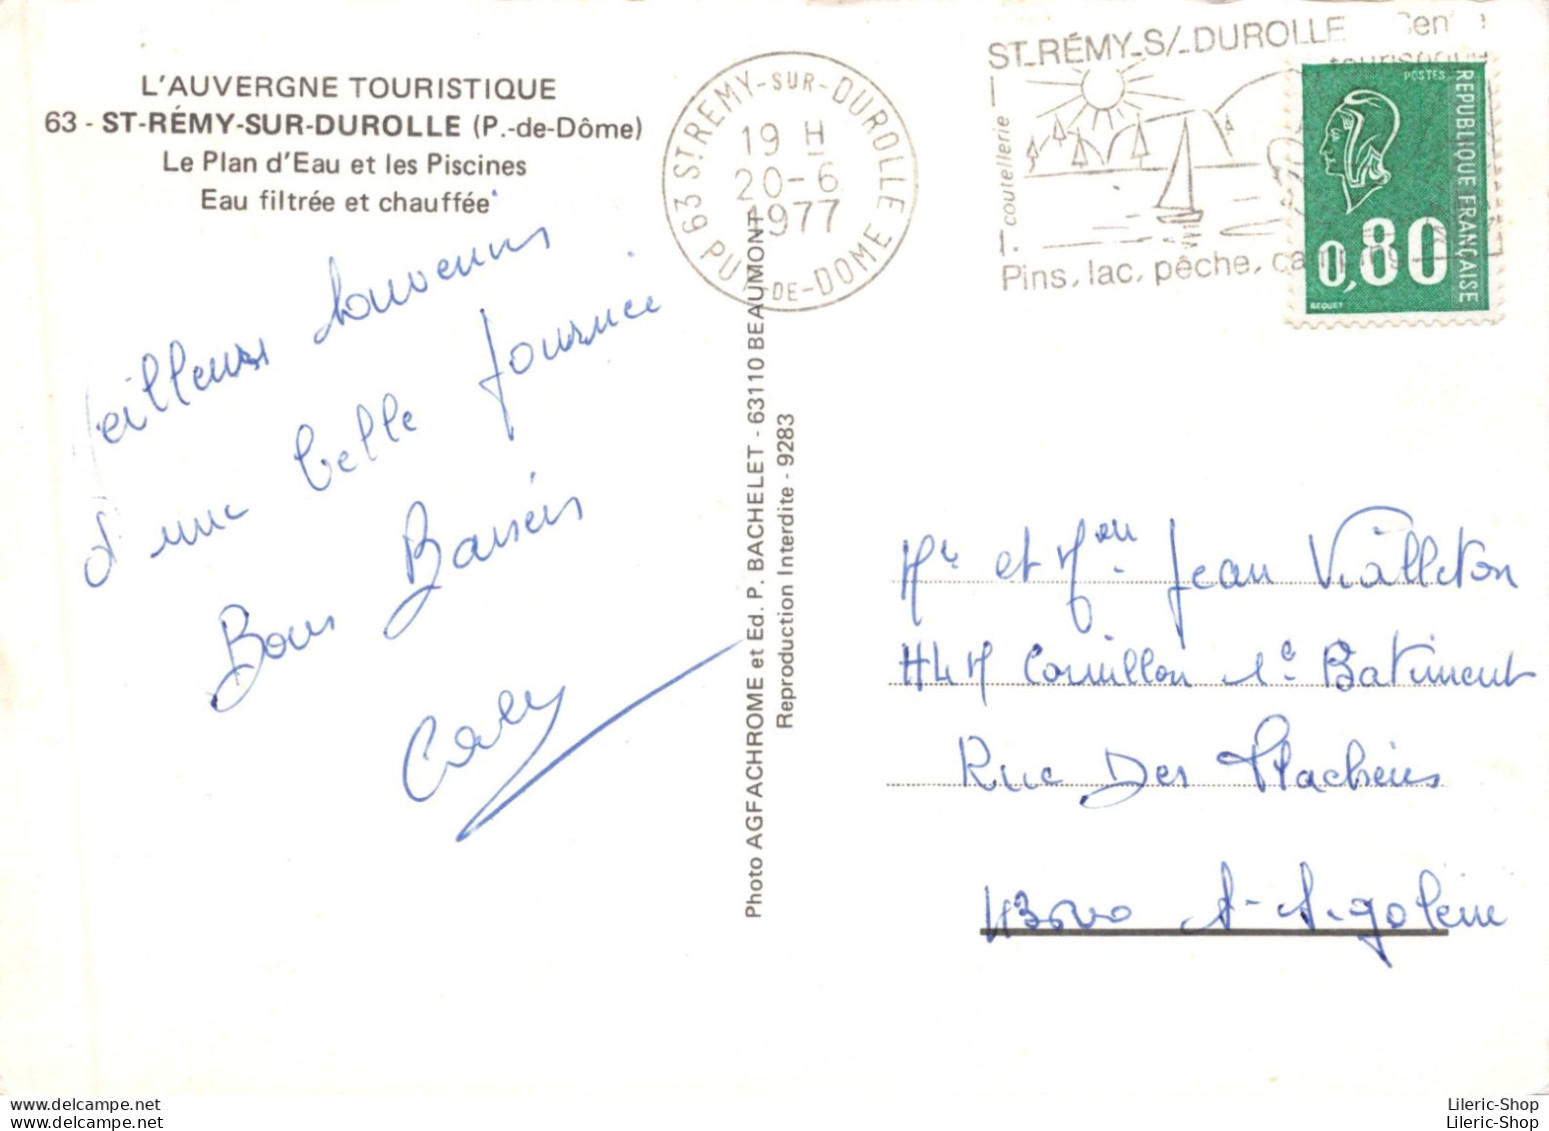 L'AUVERGNE TOURISTIQUE
63 - ST-RÉMY-SUR-DUROLLE (P.-de-Dôme)
Le Plan d'Eau et les Piscines
Eau filtrée et chauffée
Meilleurs souvenirs
d'une belle journée
Bons Baisers
Photo AGFACHROME et Ed. P. BACHELET - 63110 BEAUMONT
Reproduction Interdite - 9283
63 ST REMY-SUR-DUROLLE
19 H
20-6
1977
PUY-DE-DOME
ST-RÉMY-S/-DUROLLE Centre
touristique
coutellerie
Pins, lac, pêche, camping
POSTES
REPUBLIQUE FRANÇAISE
0,80
BEQUET
Mr et Mme Jean Vialleton
HLM Cornillon 1e Batiment
Rue Des
43600 St-Sigolène
www.delcampe.net
www.delcampe.net
Lileric-Shop
Lileric-Shop